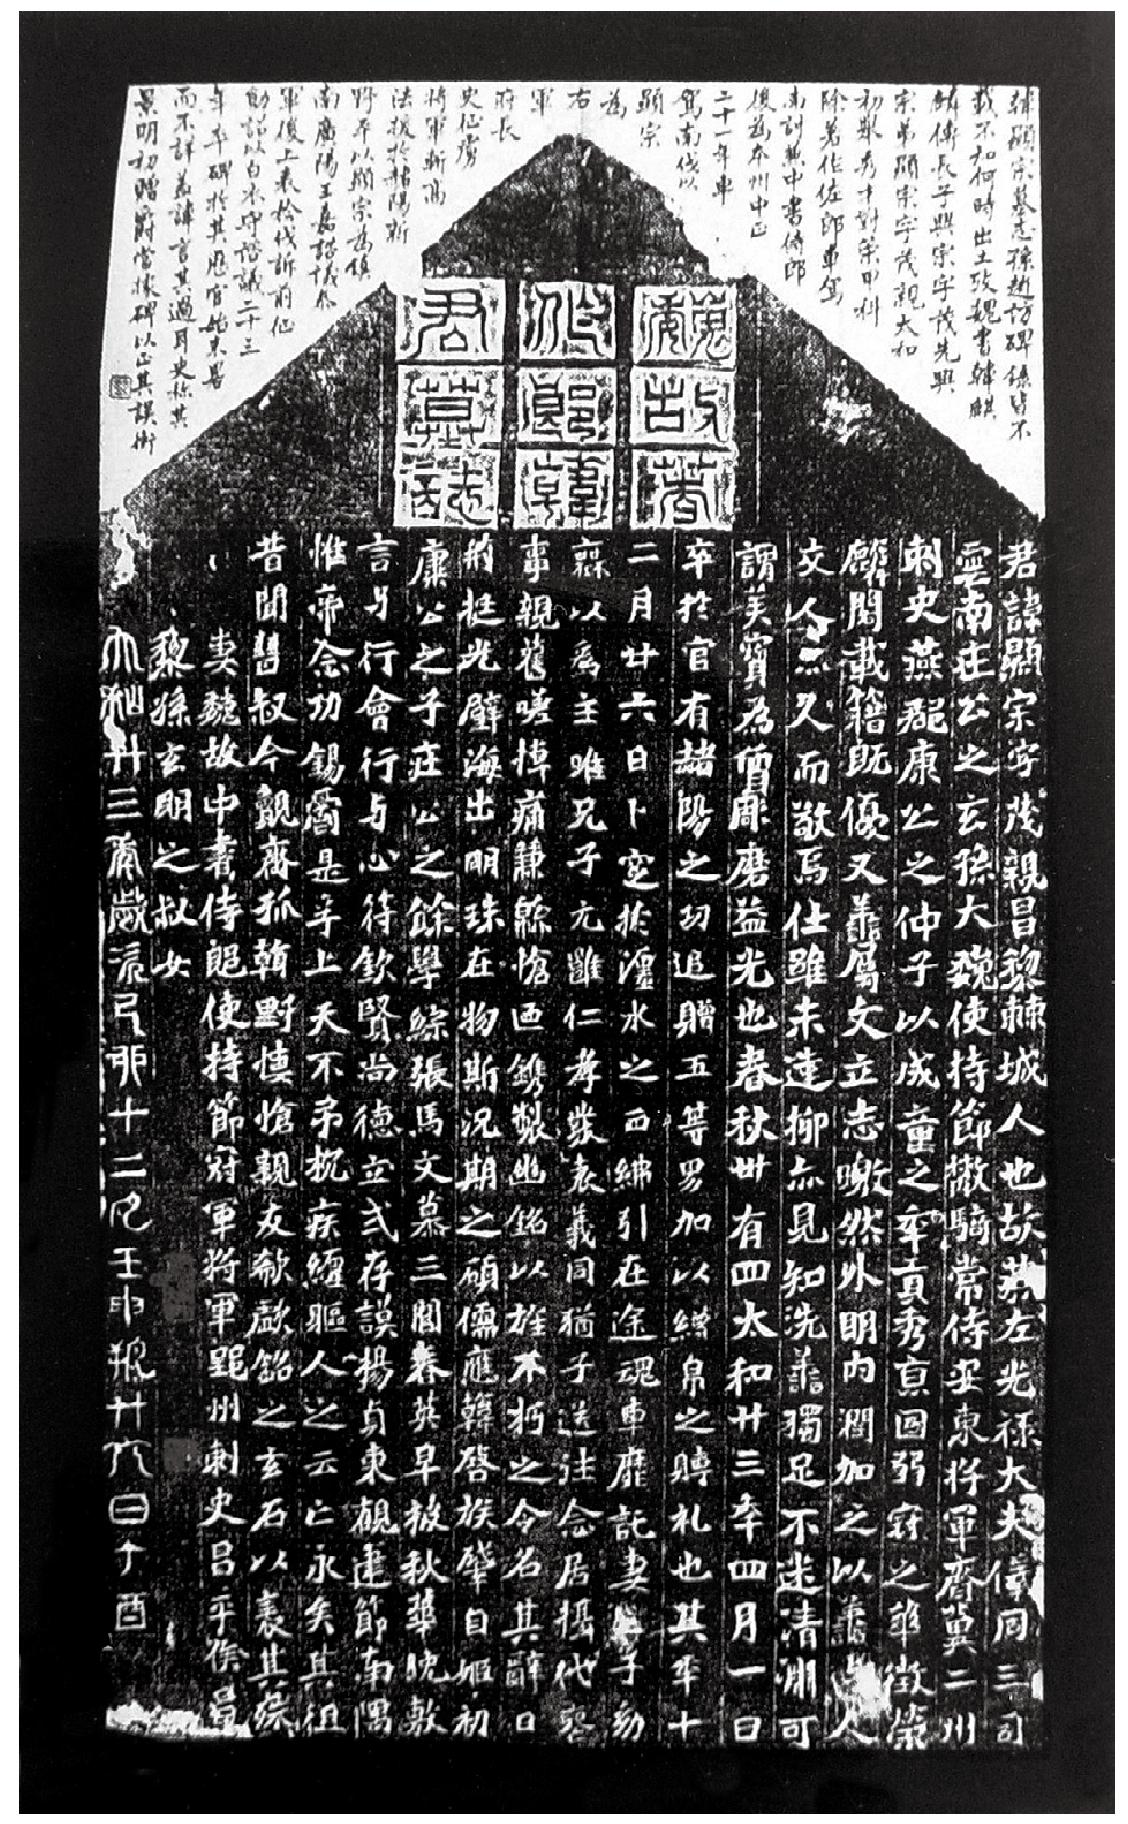 韓顯宗墓志孫趙訪碑錄皆不
載不知何時出土攷魏書韓麒
麟傳長子興宗字茂先興
宗弟顯宗字茂親太和
初舉秀才對策甲科
除著作佐郎車駕
南討兼中書侍郎
後為本州中正
二十一年車
駕南伐以
顯宗
為
右
軍
府長
史征虜
將軍斬高
法援於赭陽新
野平以顯宗為鎮
南廣陽王嘉諮議參
軍後上表矜伐訴前征
勛詔以白衣守諮議二十三
年卒碑於其歷官始末畧
而不詳蓋諱言其過耳史稱其
景明初贈爵當據碑以正其誤
魏故著
作郎韓
君墓誌
君諱顯宗字茂親昌黎棘城人也故燕左光祿大夫儀同三司
雲南莊公之玄孫大魏使持節散騎常侍安東將軍齊冀二州
刺史燕郡康公之仲子以成童之年貢秀京國弱冠之華徵榮
麟閣載籍既優又善屬文立志皦然外明內潤加之以善與人
交人亦久而敬焉仕雖未達抑亦見知洗善獨足不迷清淵可
謂美寶為質彫磨益光也春秋卅有四太和廿三年四月一日
卒於官有赭陽之功追贈五等男加以繒帛之賻礼也其年十
二月廿六日卜窆於瀍水之西紼引在途魂車靡託妻亡子幼
無以為主唯兄子元雍仁孝發衷義同猶子送往念居攝代喪
事親舊嗟悼痛兼綿愴迺鐫製幽銘以旌不朽之令名其辭曰
荊挺光璧海出明珠在物斯況期之碩儒應韓啓族肇自姬初
康公之子莊公之餘學綜張馬文慕三閭春英早披秋華晚敷
言与行會行与心符欽賢尚德立式存謨揚貞東觀建節南隅
惟帝念功錫爵是孚上天不弔枕疾纏軀人之云亡永矣其徂
昔聞嵆叔今觀齊孤韓野愼愴親友欷歔銘之玄石以表其綜
妻魏故中書侍郎使持節冠軍將軍郢州刺史昌平侯昌
黎孫玄明之叔女
太和廿三年歲次己卯十二月壬申朔廿六日丁酉